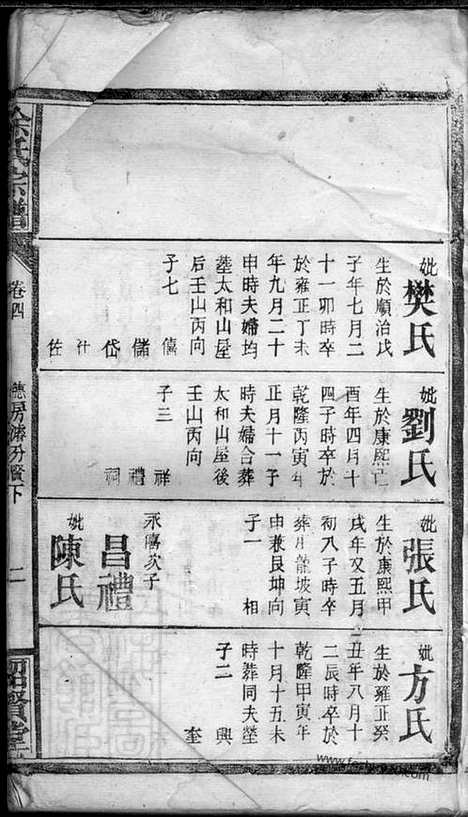 妣樊氏
生於順治戊
子年七月二
十一卯時卒
於雍正丁未
年九月二十
申時夫婦均
塟太和山屋
后壬山丙向
子七
僖
儲
岱
什
佐
妣劉氏
生於康熙
酉年四月十
四子時卒於
乾隆丙寅年
正月十一子
時夫婦合葬
太和山屋後
壬山丙向
子三
祥
禮
祠
妣張氏
生於康熙甲
戌年又五月
初八子時卒
葬 龍坡寅
申兼艮坤向
子一
相
永 次子
昌禮
妣陳氏
妣方氏
生於雍正癸
丑年八月十
二辰時卒於
乾隆甲寅年
十月十五未
時葬同夫塋
子二
興
奎
余氏宗譜
卷四
德房 分賢下
二
昭賢堂